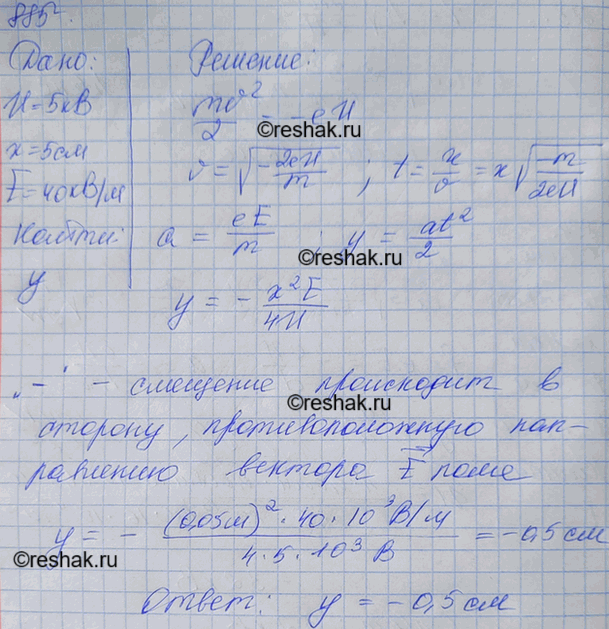 885
Дано:
U = 5кВ
x = 5см
E = 40кВ/м
Найти:
y
Решение:
mv²/2 = -eU
©reshak.ru
v = √(-2eU/m) ; t = x/v = x√(-m/2eU)
a = eE/m ; y = at²/2
©reshak.ru
y = - x²E/4U
"-" - смещение происходит в
©reshak.ru
сторону, противоположную нап-
равлению вектора E поля
y = - (0,05м)² · 40 · 10³ В/м / 4 · 5 · 10³ В = -0,5 см
©reshak.ru
Ответ: y = -0,5 см